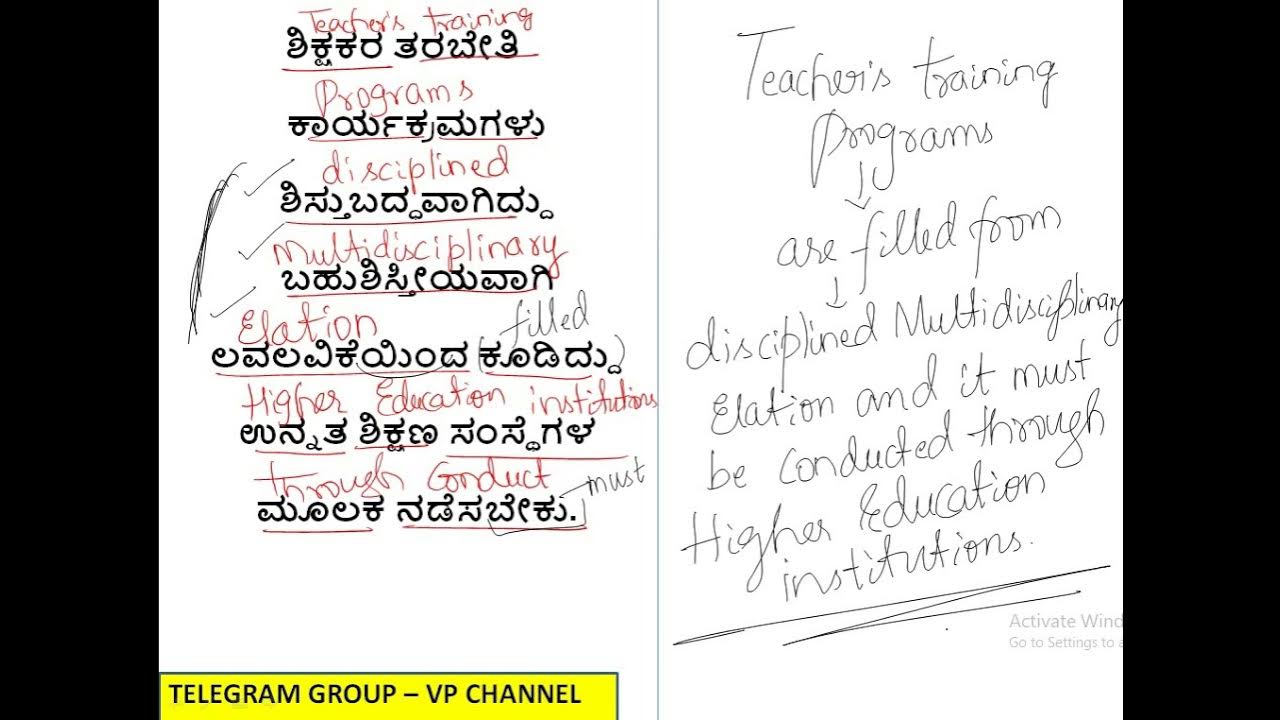 Teacher's training
ಶಿಕ್ಷಕರ ತರಬೇತಿ
Programs
ಕಾರ್ಯಕ್ರಮಗಳು
disciplined
ಶಿಸ್ತುಬದ್ಧವಾಗಿದ್ದು
Multidisciplinary
ಬಹುಶಿಸ್ತೀಯವಾಗಿ
Elation filled
ಲವಲವಿಕೆಯಿಂದ ಕೂಡಿದ್ದು
Higher Education institutions
ಉನ್ನತ ಶಿಕ್ಷಣ ಸಂಸ್ಥೆಗಳ
through Conduct must
ಮೂಲಕ ನಡೆಸಬೇಕು.
TELEGRAM GROUP – VP CHANNEL
Teacher's training
Programs
are filled from
disciplined Multidisciplinary
Elation and it must
be conducted through
Higher Education
institutions.
Activate Wind
Go to Settings to a